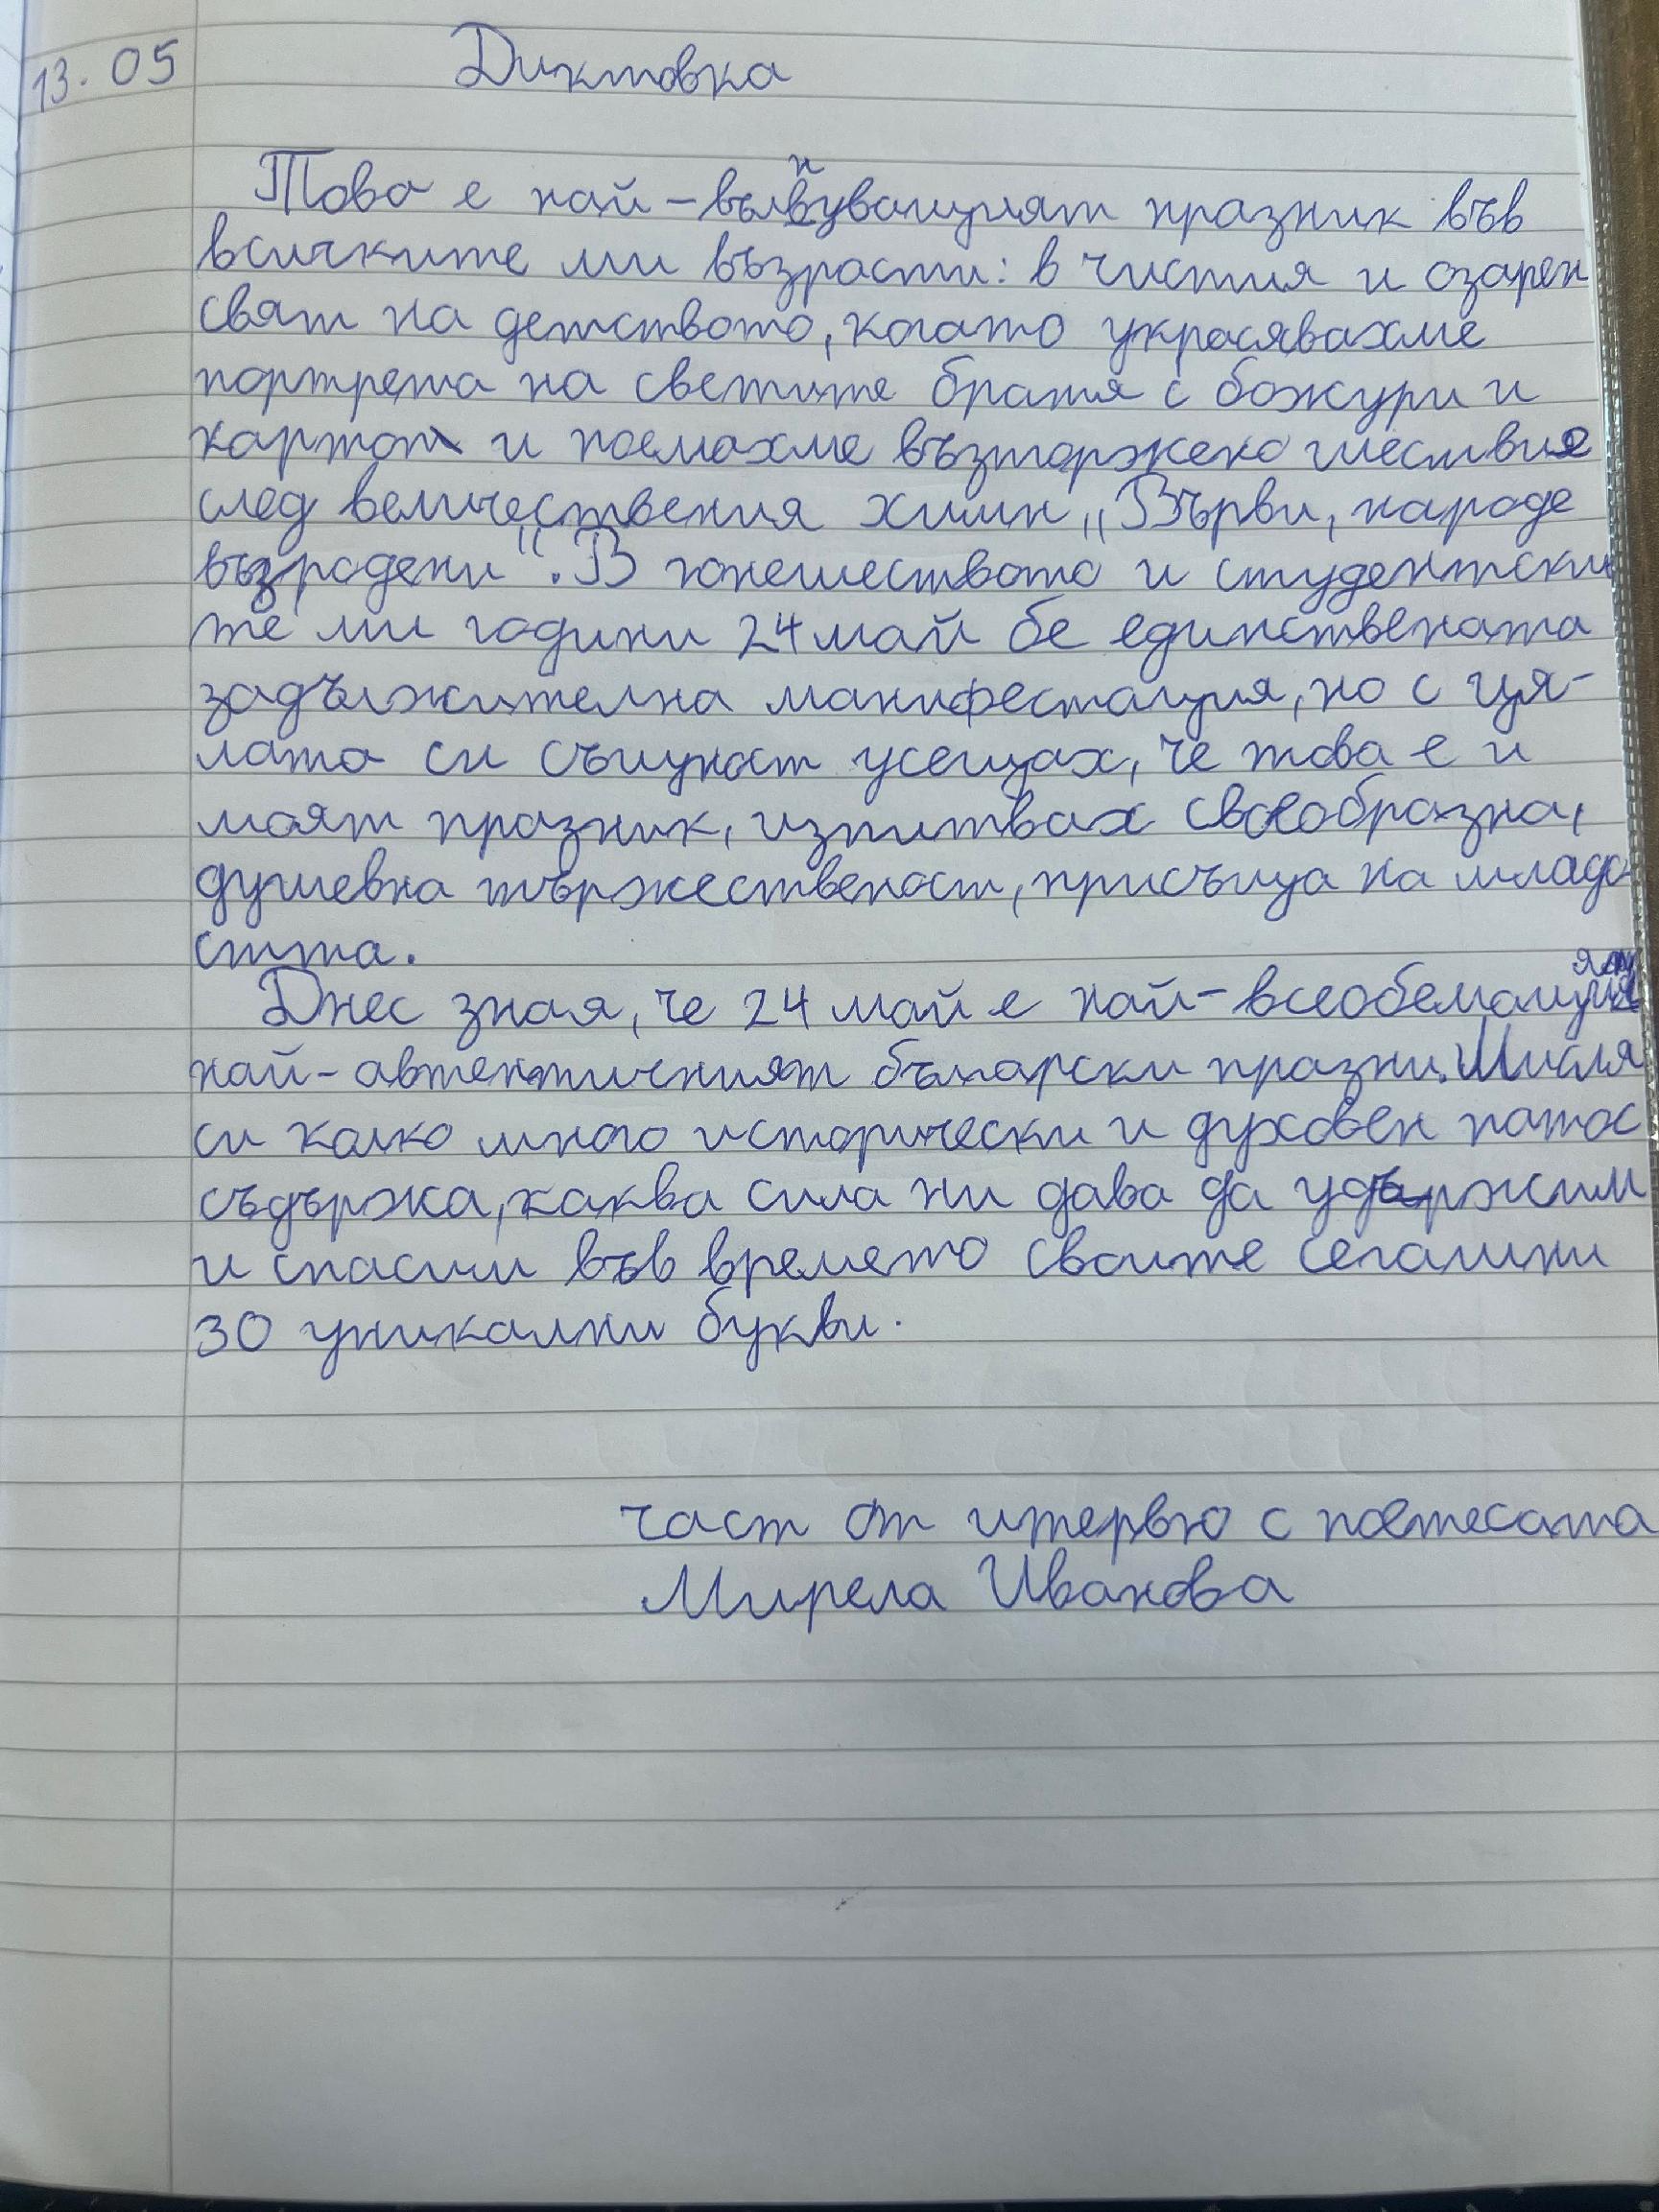 13.05 Диктовка
Това е най-вълнуващият празник във
всичките ми възрасти: в чистия и озарен
свят на детството, когато украсявахме
портрета на светите братя с божури и
картоп и поемахме възторжено шествие
след величествения химн „Върви, народе
възродени“. В юношеството и студентски
те ми години 24 май бе единствената
задължителна манифестация, но с ця-
лата си същуност усещах, че това е и
моят празник, изпитвах своеобразна,
душевна тържественост, присъща на младо
стта.
Днес зная, че 24 май е най-всеобемащият
най-автентичният български празни. Мисля
си колко много исторически и духовен патос
съдържа, каква сила ни дава да удържим
и спасим във времето своите сегашни
30 уникални букви.
част от итервю с поетесата
Мирела Иванова